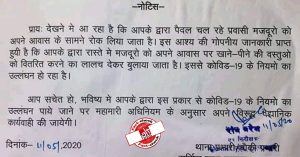 -नोटिस-
प्रायः देखने मे आ रहा है कि आपके द्वारा पैदल चल रहे प्रवासी मजदूरो को
अपने आवास के सामने रोक लिया जाता है। इस आशय की गोपनीय जानकारी प्राप्त
हुयी है कि आपके द्वारा रास्ते मे मजदूरो को अपने आवास पर खाने-पीने की वस्तुओ
को वितरित करने का लालच देकर बुलाया जाता है। इससे कोविड-19 के नियमो का
उल्लंघन हो रहा है।
अप सचेत हो, भविष्य मे आपके द्वारा इस प्रकार से कोविड-19 के नियमो का
उल्लंघन पाये जाने पर महामारी अधिनियम के अनुसार आपके विरूद्ध वैधानिक
कार्यवाही की जायेगी।
11/05/2020
11/05/20
थाना प्रभारी